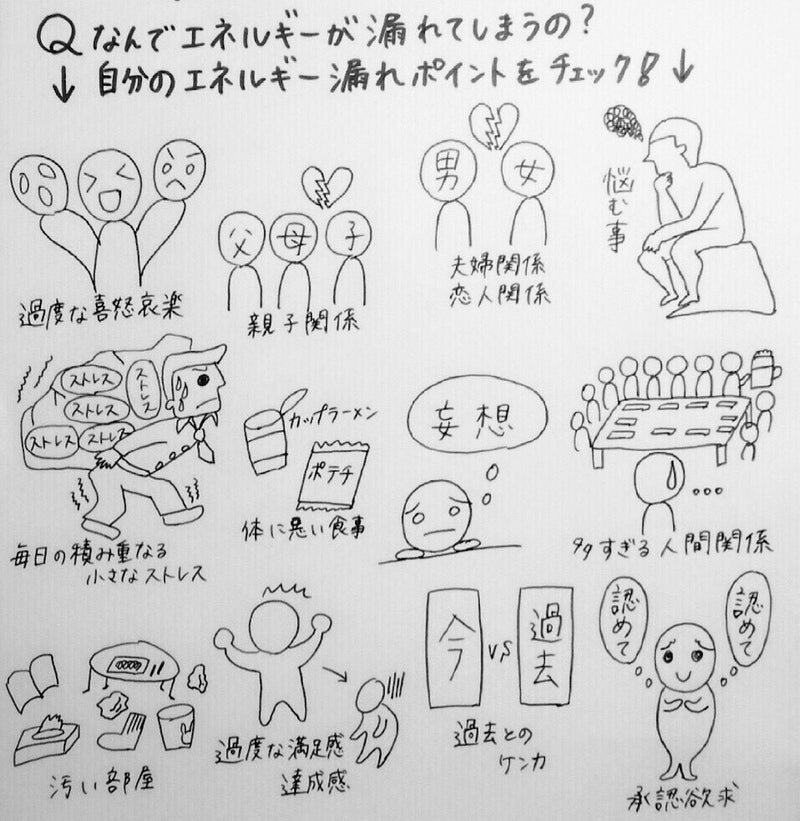 Qなんでエネルギーが漏れてしまうの?
↓自分のエネルギー漏れポイントをチェック!↓
過度な喜怒哀楽
父 母 子
親子関係
男 女
夫婦関係
恋人関係
悩む事
ストレス
ストレス
ストレス
ストレス
ストレス
毎日の積み重なる
小さなストレス
カップラーメン
ポテチ
体に悪い食事
妄想
多すぎる人間関係
汚い部屋
過度な満足感
達成感
今 VS 過去
過去との
ケンカ
認めて
認めて
承認欲求